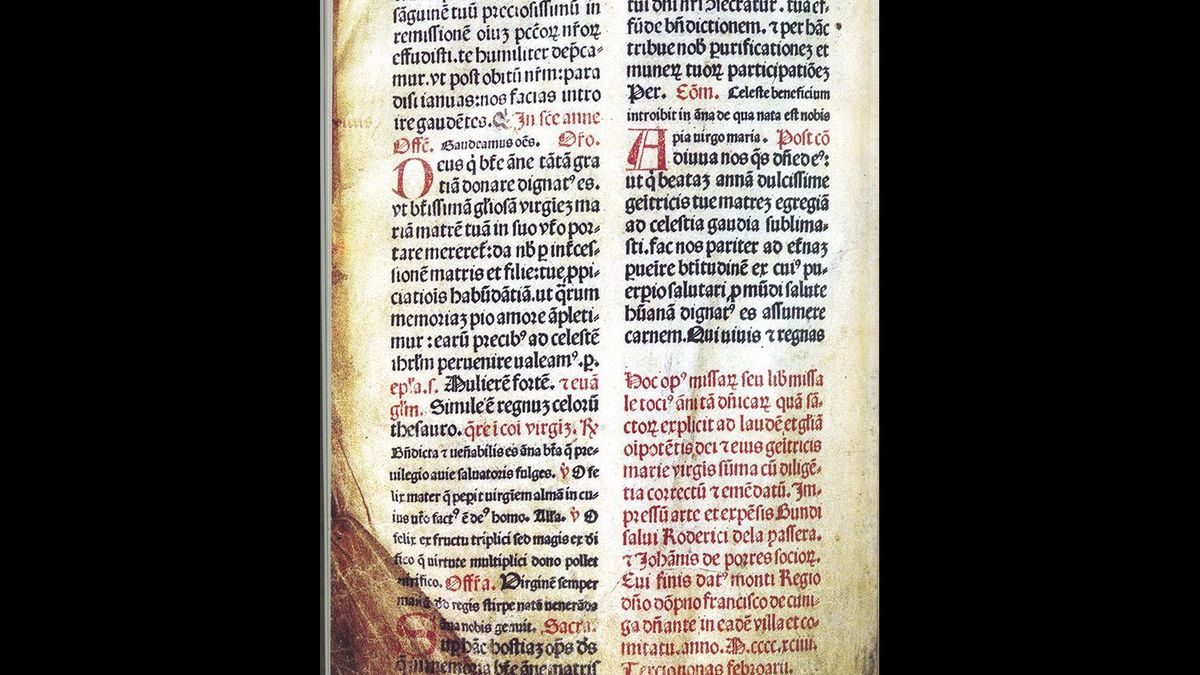 sãguinẽ tuũ preciosissimũ in
remissionẽ oiuʒ pccõꝝ nr̃oꝝ
effudisti. te humiliter dep̃ca-
mur. vt post obitũ nr̃m: para
disi ianuas: nos facias intro
ire gaudẽtes. In scẽ anne
Offẽ. Gaudeamus oẽs. Oro.
Deus q̇ btẽ ãne tãtã gra
tiã donare dignat⁹ es.
vt bt̃issimã gl̃iosã virgiẽʒ ma
riã matrẽ tuã in suo vt̃o por-
tare mereret᷑: da nb̃ ꝑ int̃ces-
sionẽ matris et filie: tue ꝓpi-
ciatiois habũdãtiã. ut q̃rum
memoriaʒ pio amore ãpleti-
mur: earũ precib⁹ ad celestẽ
ihrl̃m peruenire ualeam⁹. ꝑ.
ep̃l'a. s. Mulierẽ fortẽ. ⁊ euã
gl'm. Simile ẽ regnuʒ celorũ
thesauro. q̃re ĩ cõi virgiʒ. ℟
Bñdicta ⁊ ueñabilis es ãna bt̃a q̃ pre-
uilegio auie saluatoris fulges. ℣ O fe
lix mater q̃ peꝑit uirgiẽm almã in cu-
ius vt̃o fact⁹ ẽ de⁹ homo. Alla. ℣ O
felix ex fructu triplici sed magis ex di
fico q̃ virtute multiplici dono pollet
mirifico. Offr̃a. Virginẽ semper
mariã regis stirpe natã uenerãda
ãna nobis genuit. Sacra.
Sup hãc hostiaʒ q̃s ds̃
q̃ in memoria bt̃e ãne matris
fũde bñdictionem. ⁊ per hãc
tribue nob̃ purificationeʒ et
muneꝝ tuoꝝ participatiõeʒ
Per. Cõm. Celeste beneficium
introibit in ãna de qua nata est nobis
pia uirgo maria. Post cõ
Adiuua nos q̃s dñe de⁹:
ut q̇ beataʒ annã dulcissime
geĩtricis tue matreʒ egregiã
ad celestia gaudia sublima-
sti. fac nos pariter ad et̃naʒ
ꝑueĩre bt̃itudinẽ ex cui⁹ pu-
erꝑio salutari ꝓ mũdi salute
hũanã dignat⁹ es assumere
carnem. Qui uiuis ⁊ regnas
Hoc op⁹ missaꝝ seu lib̃ missa
le toci⁹ ãni tã dñicaꝝ quã sã-
ctoꝝ explicit ad laudẽ et gl̃iã
oipotẽtis dei ⁊ eius geĩtricis
marie virgis sũma cũ diligẽ-
tia correctũ ⁊ emẽdatũ. Im-
pressũ arte et expẽsis Gundi
salui Roderici dela passera.
⁊ Johãnis de porres socioꝝ.
Cui finis dat⁹ monti Regio
dño dõpno francisco de cuni-
ga dñante in eadẽ villa et co-
mitatu. anno. M.cccc.xciiii.
Tercio nonas februarii.